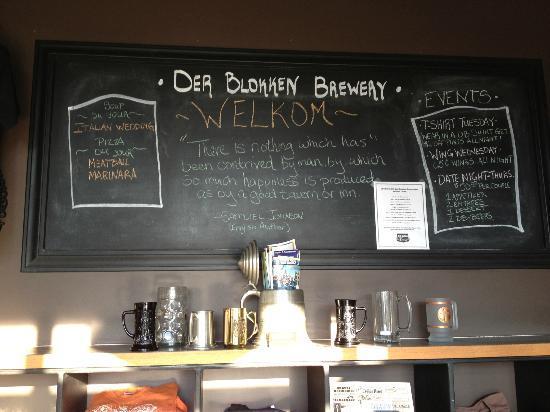 · DER BLOKKEN BREWERY ·
~WELKOM~
SOUP
DU JOUR
ITALIAN WEDDING
PIZZA
DU JOUR
MEATBALL
MARINARA
"There is nothing which has
been contrived by man, by which
so much happiness is produced
as by a good tavern or inn.
-SAMUEL JOHNSON
Author)
· EVENTS ·
·T-SHIRT TUESDAY·
WEAR A DB SHIRT GET
ALL NIGHT!
·WING WEDNESDAY·
WINGS ALL NIGHT
·DATE NIGHT-THURS.
PER COUPLE
1 APPETIZER
2 ENTREES
1 DESSERT
2 DB BEERS